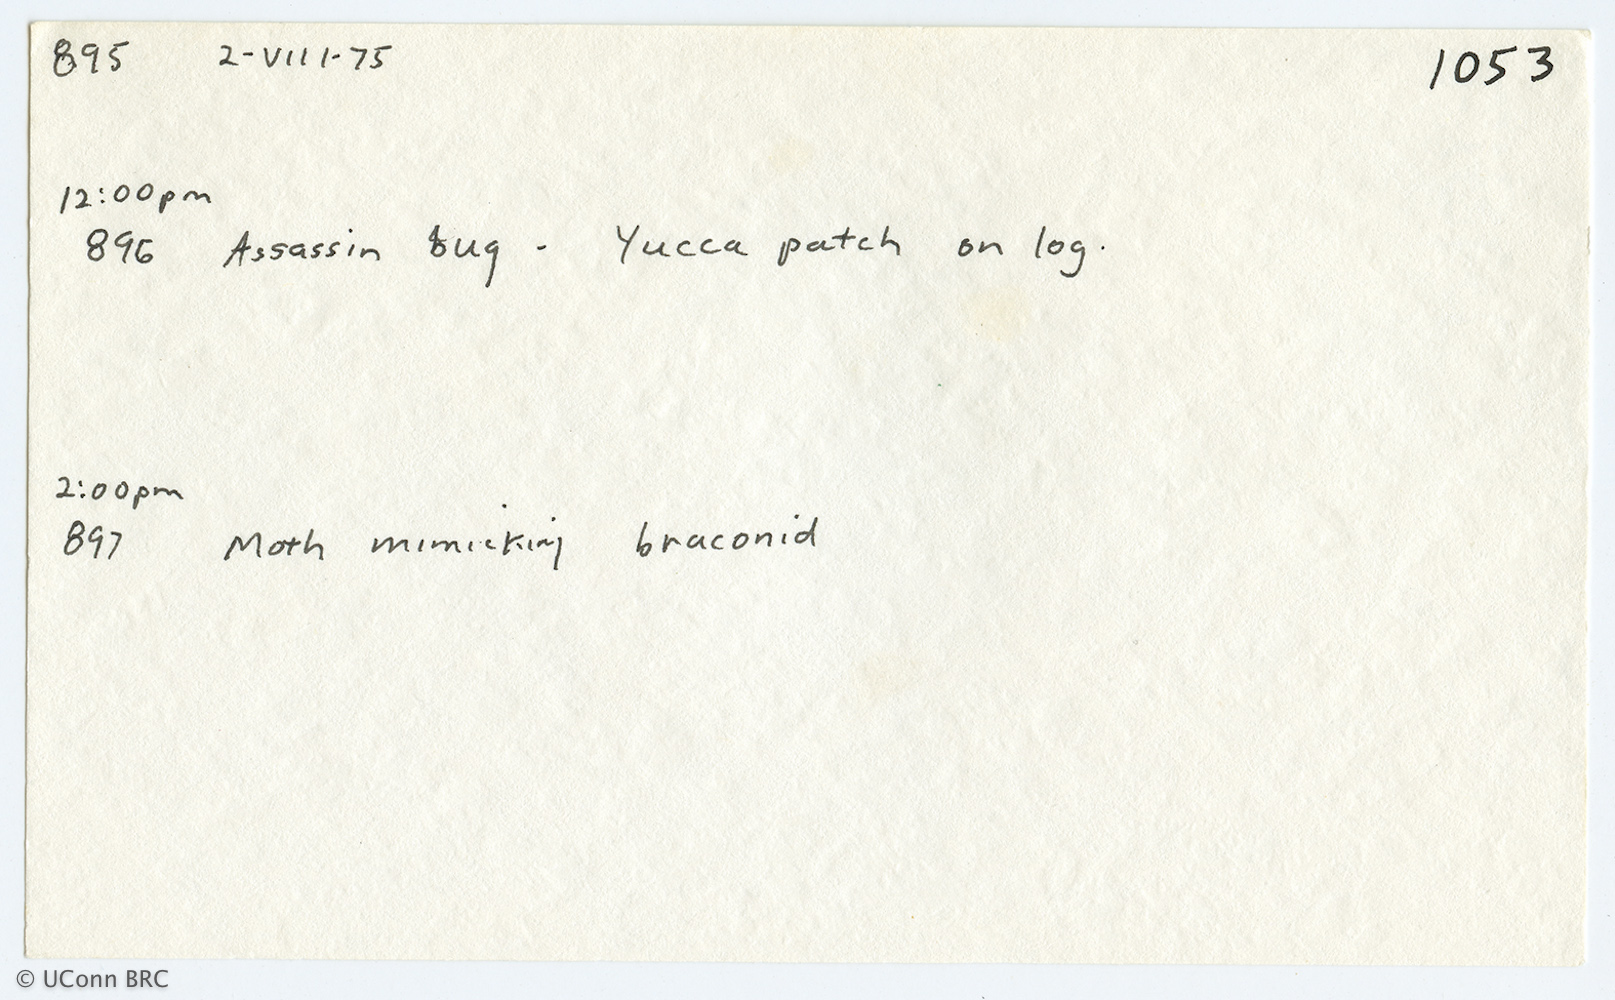 895 2-VIII-75 1053
12:00pm
896 Assassin bug - Yucca patch on log.
2:00pm
897 Moth mimicking braconid
© UConn BRC